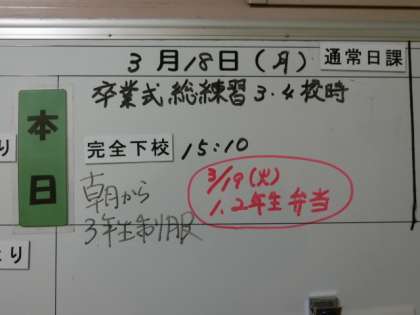 3月18日(月) 通常日課
卒業式総練習3.4校時
本日
り
完全下校 15:10
朝から
3年生制服
3/19(火)
1.2年生弁当
より